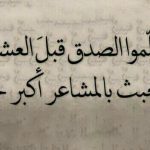 لّموا الصدق قبلَ العش
عبث بالمشاعر أكبر